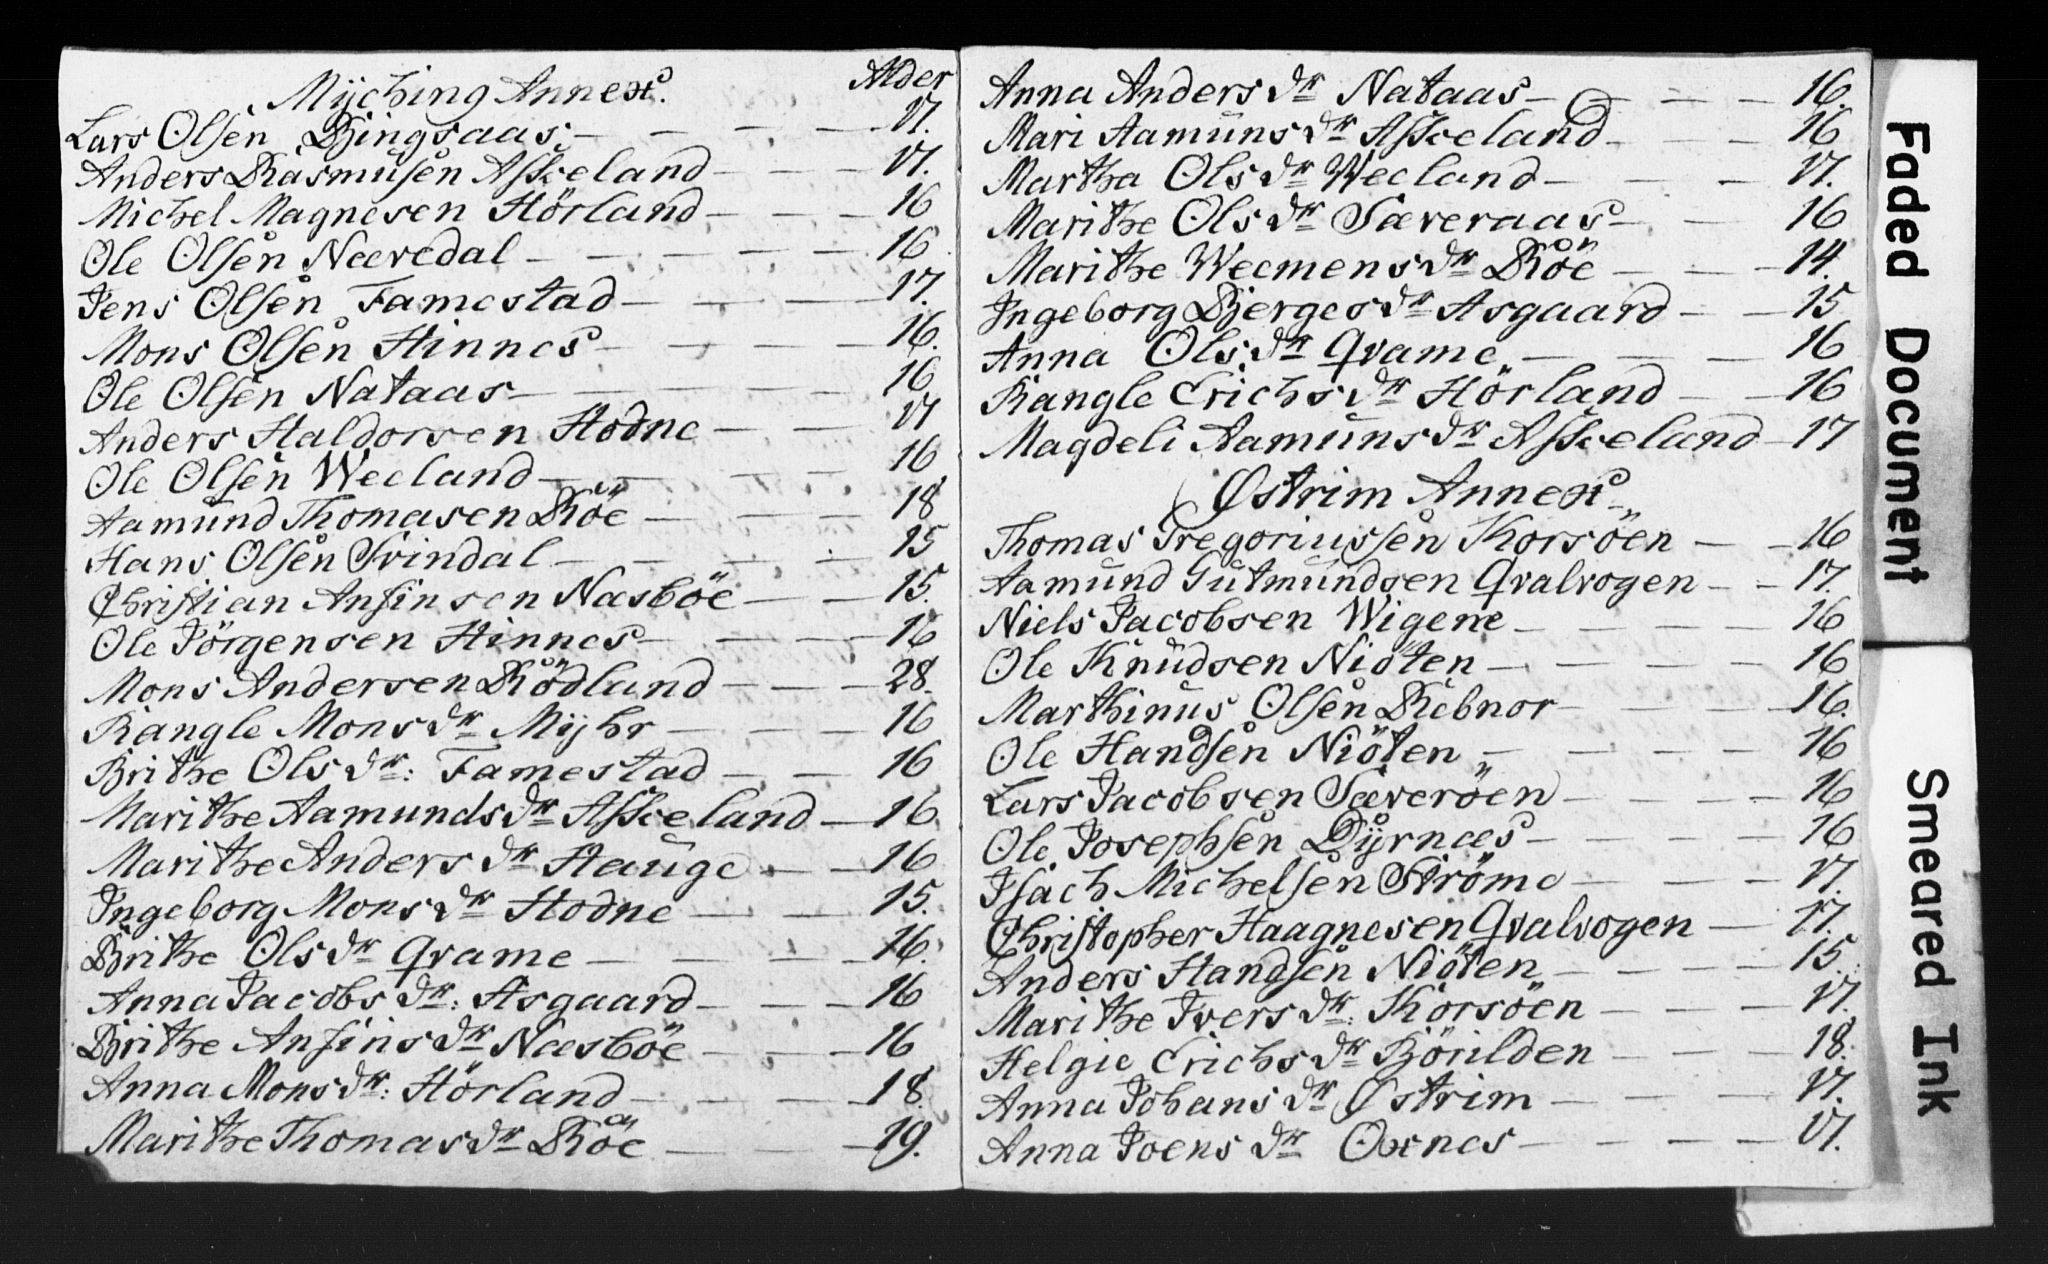 Mÿching Annex. Alder
Lars Olsen Bingsaas. — — — — 17.
Anders Rasmusen Asseland — — — 17.
Michel Magnesen Hörland — — — 16
Ole Olsen Næredal — — — — 16
Jens Olsen Famestad — — — — 17.
Mons Olsen Hinnes — — — — 16.
Ole Olsen Nataas — — — — 16
Anders Haldorsen Hodne — — — 17
Ole Olsen Weeland — — — — 16
Aamund Thomasen Röe — — — 18
Hans Olsen Svindal — — — — 15
Christian Ansinsen Næsböe — — 15.
Ole Jörgensen Hinnes — — — — 16
Mons Andersen Rödland — — — 28.
Rangle Mons dr Mÿhr — — — — 16
Brithe Ols dr: Famestad — — — 16
Marithe Aamunds dr Asseland — 16
Marithe Anders dr Hauge — — 16
Ingeborg Mons dr Hodne — — — 15.
Brithe Ols dr Qvame — — — — 16.
Anna Jacobs dr: Asgaard — — — 16
Brithe Ansins dr Næsböe — — — 16
Anna Mons dr: Hörland — — — — 18.
Marithe Thomas dr Röe — — — 19.
Anna Anders dr Nataas — — — — 16.
Mari Aamuns dr Asseland — — — 16
Martha Ols dr Weeland — — — 17.
Marithe Ols dr Sæveraas — — 16
Marithe Weemens dr Röe — — — 14.
Ingeborg Bjerges dr Asgaard — — 15
Anna Ols dr Qvame — — — — 16
Rangle Erichs dr Hörland — — 16
Magdeli Aamuns dr Asseland — 17
Østrim Annex
Thomas Gregoriussen Korsöen — — 16
Aamund Gutmundsen Qvalvogen — — 17.
Niels Jacobsen Wigene — — — — 16
Ole Knudsen Niöten — — — — 16
Marthinus Olsen Rebnor — — — — 16.
Ole Handsen Niöten — — — — 16
Lars Jacobsen Sæveröen — — — — 16
Ole Josephsen Dÿrnæs — — — — 16
Isach Michelsen Ströme — — — 17.
Christopher Haagnesen Qvalvogen — — 17.
Anders Handsen Niöten — — — — 15.
Marithe Ivers dr: Korsöen — — — 17.
Helgie Erichs dr Björilden — — — 18.
Anna Johans dr Østrim — — — — 17.
Anna Joens dr Oxnes — — — — 17.
Faded Document
Smeared Ink